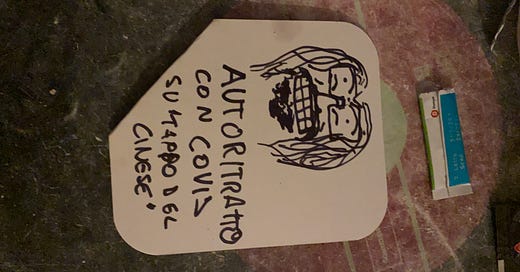 AUTORITRATTO
CON COVID
SU TAPPO DEL
CINESE"